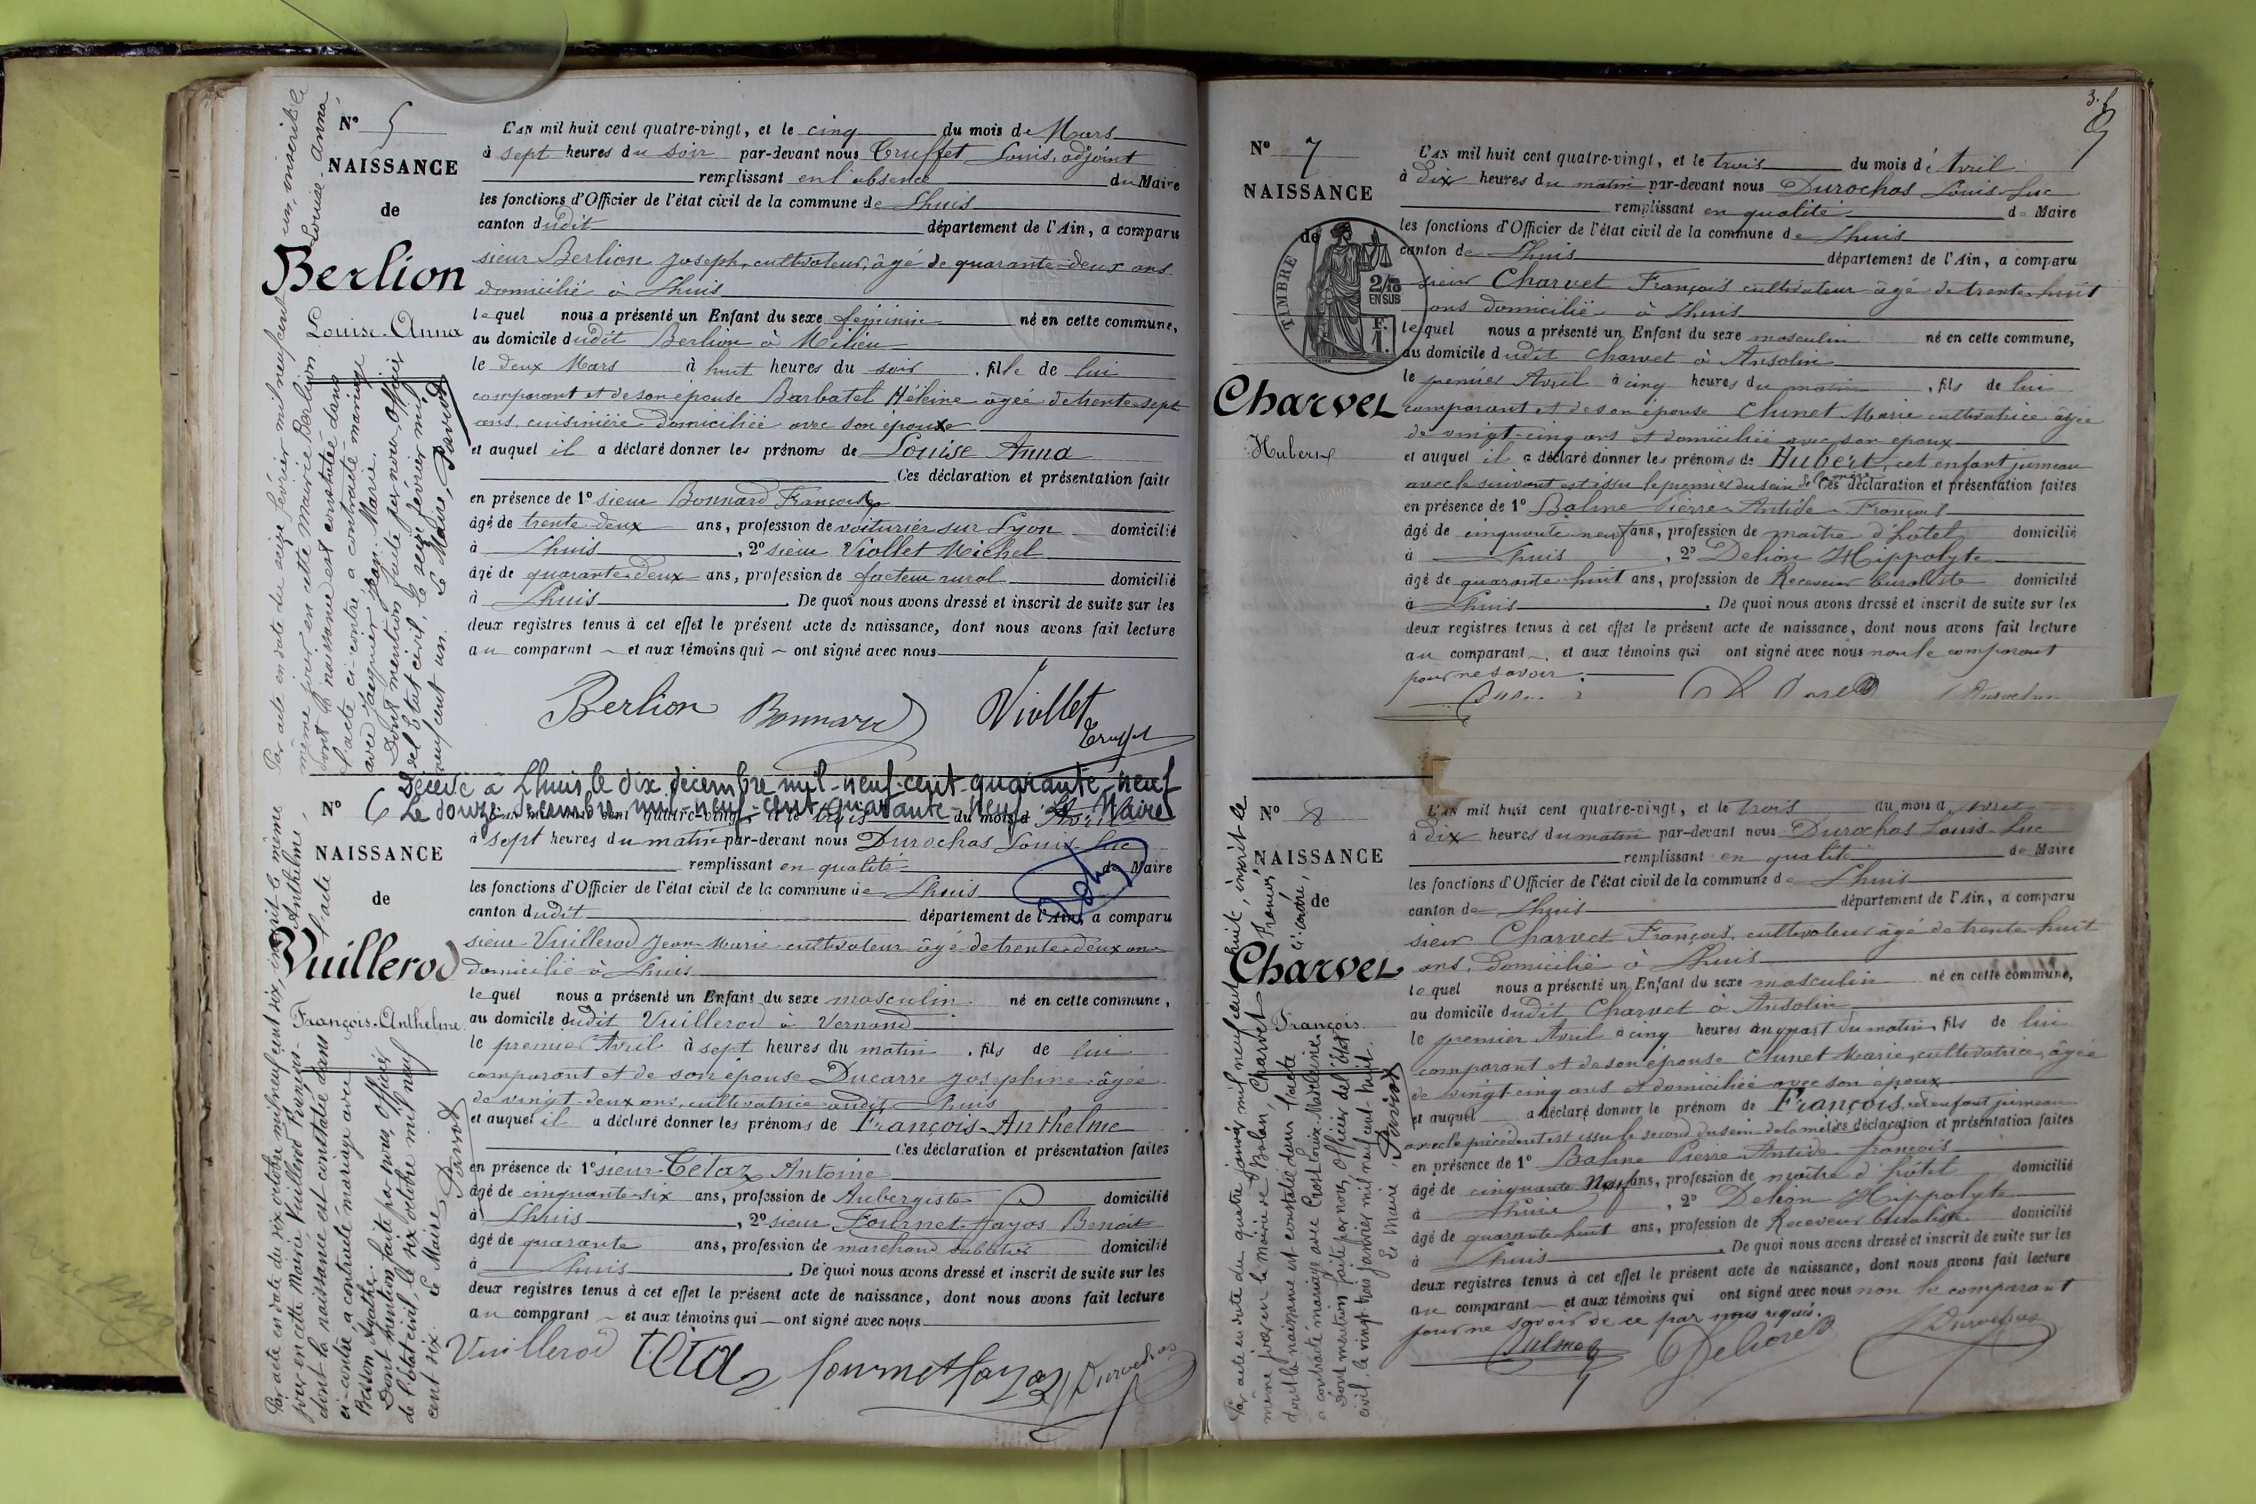 N° 5
NAISSANCE
de
Berlion
Louise-Anna
L'AN mil huit cent quatre-vingt, et le cinq du mois de Mars
à sept heures du soir par-devant nous Truffet Louis, adjoint
remplissant en l'absence du Maire
les fonctions d'Officier de l'état civil de la commune de Lhuis
canton dudit département de l'Ain, a comparu
sieur Berlion Joseph, cultivateur, âgé de quarante-deux ans
domicilié à Lhuis
lequel nous a présenté un Enfant du sexe féminin né en cette commune,
au domicile dudit Berlion à Milieu
le deux Mars à huit heures du soir, fille de lui
comparant et de son épouse Barbatel Héleine âgée de trente-sept
ans, cuisinière domiciliée avec son époux
et auquel il a déclaré donner les prénoms de Louise Anna
Ces déclaration et présentation faite
en présence de 1° sieur Bonnard François
âgé de trente-deux ans, profession de voiturier sur Lyon domicilié
à Lhuis, 2° sieur Viollet Michel
âgé de quarante-deux ans, profession de facteur rural domicilié
à Lhuis. De quoi nous avons dressé et inscrit de suite sur les
deux registres tenus à cet effet le présent acte de naissance, dont nous avons fait lecture
au comparant et aux témoins qui ont signé avec nous
Berlion Bonnard Viollet
Truffet
Par acte en date du seize février mil neuf cent un, inscrit le
même jour en cette mairie Berlion Louise-Anna,
dont la naissance est constatée dans
l'acte ci-contre, a contracté mariage
avec Jacquier Jean-Marie.
Dont mention faite par nous, officier
de l'état civil, le seize février mil
neuf cent un. Le Maire, Parrod
Décédé à Lhuis le dix décembre mil-neuf-cent-quarante-neuf
Le douze décembre mil-neuf-cent-quarante-neuf Le Maire
N° 6
NAISSANCE
de
Vuillerod
François-Anthelme
L'AN mil huit cent quatre-vingt, et le trois du mois d'Avril
à sept heures du matin par-devant nous Durochas Louis-Luc
remplissant en qualité de Maire
les fonctions d'Officier de l'état civil de la commune de Lhuis
canton dudit département de l'Ain, a comparu
sieur Vuillerod Jean-Marie cultivateur âgé de trente-deux ans
domicilié à Lhuis
lequel nous a présenté un Enfant du sexe masculin né en cette commune,
au domicile dudit Vuillerod à Vernand
le premier Avril à sept heures du matin, fils de lui
comparant et de son épouse Ducarre Josephine âgée
de vingt-deux ans, cultivatrice audit Lhuis
et auquel il a déclaré donner les prénoms de François-Anthelme
Ces déclaration et présentation faites
en présence de 1° sieur Tétaz Antoine
âgé de cinquante-six ans, profession de Aubergiste domicilié
à Lhuis, 2° sieur Fournet-Fayos Benoit
âgé de quarante ans, profession de marchand sabotier domicilié
à Lhuis. De quoi nous avons dressé et inscrit de suite sur les
deux registres tenus à cet effet le présent acte de naissance, dont nous avons fait lecture
au comparant et aux témoins qui ont signé avec nous
Vuillerod Tétaz fournet fayos Durochas
Par acte en date du six octobre mil neuf cent six, inscrit le même
jour en cette Mairie Vuillerod François-Anthelme,
dont la naissance est constatée dans l'acte
ci-contre a contracté mariage avec
Besson Agathe.
Dont mention faite par nous, Officier
de l'état civil, le six octobre mil neuf
cent six. Le Maire Parrod
3.
N° 7
NAISSANCE
de
TIMBRE
2/10
EN SUS
F.
1.
Charvet
Hubert
L'AN mil huit cent quatre-vingt, et le trois du mois d'Avril
à dix heures du matin par-devant nous Durochas Louis-Luc
remplissant en qualité de Maire
les fonctions d'Officier de l'état civil de la commune de Lhuis
canton de Lhuis département de l'Ain, a comparu
sieur Charvet François cultivateur âgé de trente-huit
ans domicilié à Lhuis
lequel nous a présenté un Enfant du sexe masculin né en cette commune,
au domicile dudit Charvet à Ansolin
le premier Avril à cinq heures du matin, fils de lui
comparant et de son épouse Chunet Marie cultivatrice âgée
de vingt-cinq ans et domiciliée avec son époux
et auquel il a déclaré donner les prénoms de Hubert, cet enfant jumeau
avec le suivant est issu le premier du sein de la mère Ces déclaration et présentation faites
en présence de 1° Balme Pierre-Antide-François
âgé de cinquante neuf ans, profession de maître d'hôtel domicilié
à Lhuis, 2° Delion Hippolyte
âgé de quarante-huit ans, profession de Receveur buraliste domicilié
à Lhuis. De quoi nous avons dressé et inscrit de suite sur les
deux registres tenus à cet effet le présent acte de naissance, dont nous avons fait lecture
au comparant et aux témoins qui ont signé avec nous non le comparant
pour ne savoir.
N° 8
NAISSANCE
de
Charvet
François
L'AN mil huit cent quatre-vingt, et le trois du mois d'Avril
à dix heures du matin par-devant nous Durochas Louis-Luc
remplissant en qualité de Maire
les fonctions d'Officier de l'état civil de la commune de Lhuis
canton de Lhuis département de l'Ain, a comparu
sieur Charvet François, cultivateur âgé de trente-huit
ans, domicilié à Lhuis
lequel nous a présenté un Enfant du sexe masculin né en cette commune,
au domicile dudit Charvet à Ansolin
le premier Avril à cinq heures du quart du matin, fils de lui
comparant et de son épouse Chunet Marie, cultivatrice, âgée
de vingt-cinq ans et domiciliée avec son époux
et auquel a déclaré donner le prénom de François, cet enfant jumeau
avec le précédent est issu le second du sein de la mère Ces déclaration et présentation faites
en présence de 1° Balme Pierre-Antide-François
âgé de cinquante neuf ans, profession de maître d'hôtel domicilié
à Lhuis, 2° Delion Hippolyte
âgé de quarante-huit ans, profession de Receveur buraliste domicilié
à Lhuis. De quoi nous avons dressé et inscrit de suite sur les
deux registres tenus à cet effet le présent acte de naissance, dont nous avons fait lecture
au comparant et aux témoins qui ont signé avec nous non le comparant
pour ne savoir de ce par nous requis.
Balme Delion Durochas
Par acte en date du quatre janvier mil neuf cent huit, inscrit le
même jour en la mairie de Bolan, Charvet François,
dont la naissance est constatée dans l'acte ci-contre,
a contracté mariage avec Crost Louise-Madeleine.
Dont mention faite par nous, Officier de l'état
civil, le vingt trois janvier mil neuf cent huit.
Le Maire, Parrod